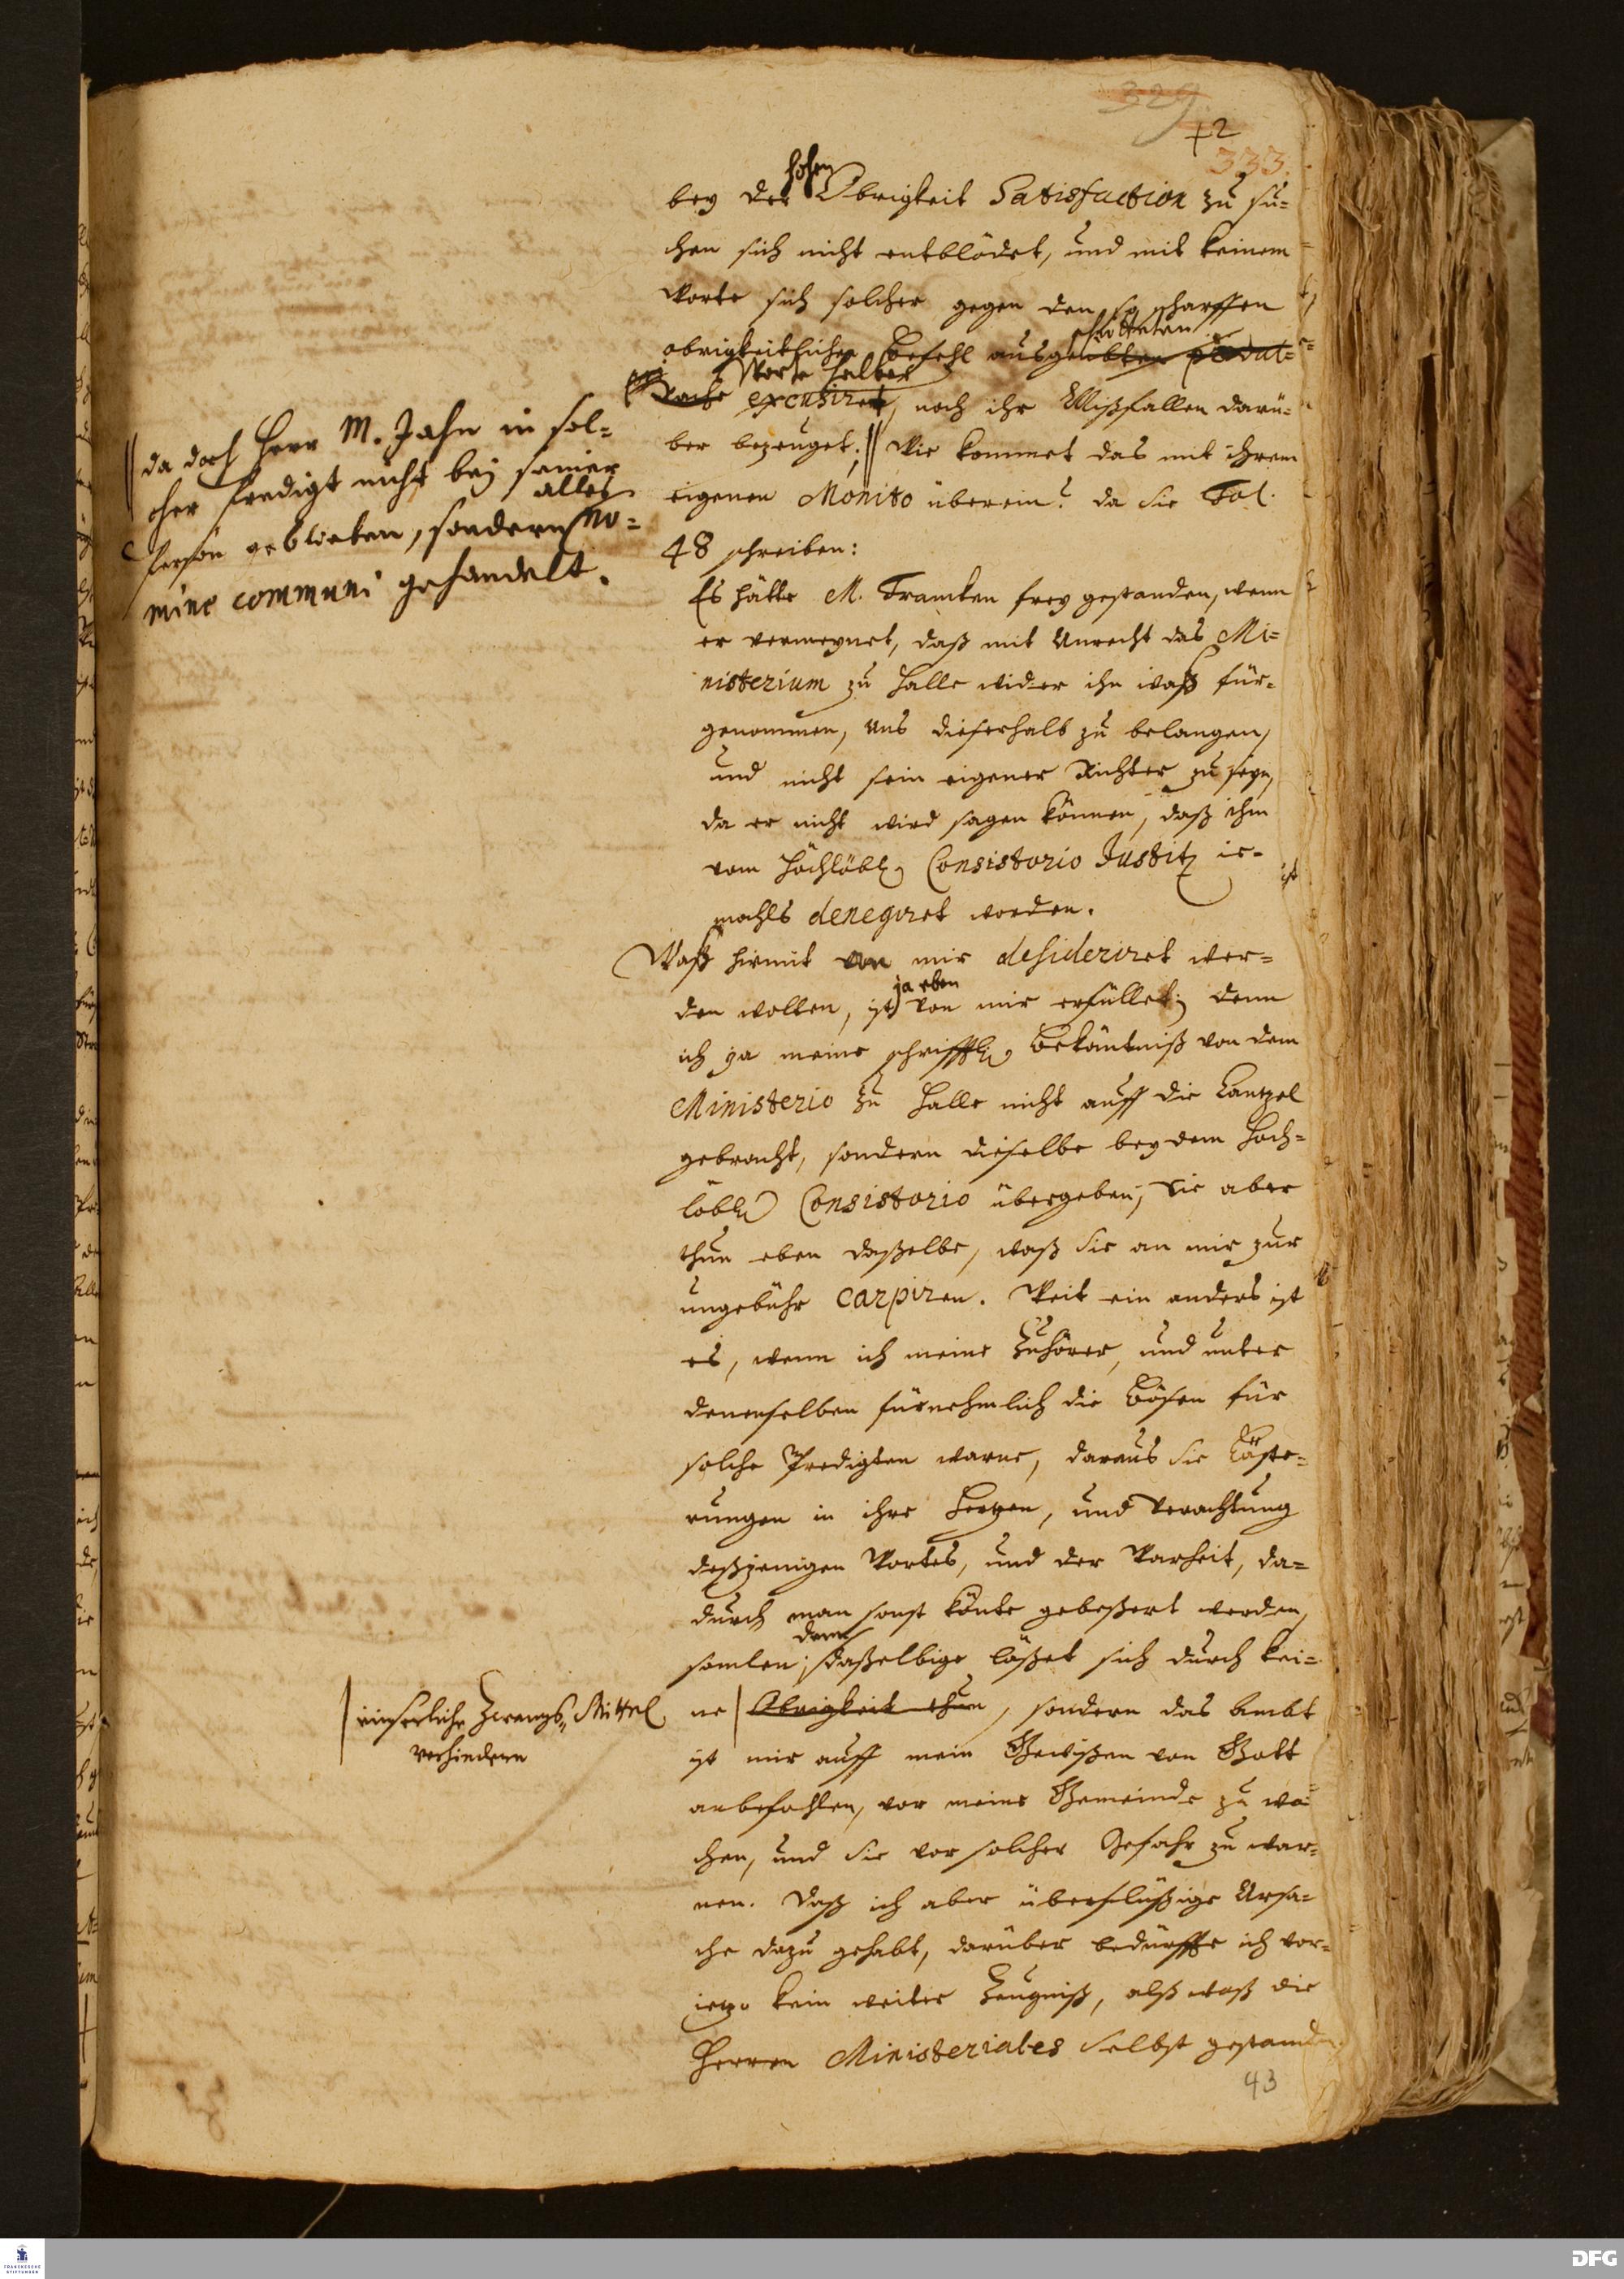 329
42
333.
hohen
bey der Obrigkeit Satisfaction zu su=
chen sich nicht entblödet, und mit keinem
Worte sich solcher gegen den so scharffen
schütteten
obrigkeitlichen Befehl ausgeübten
Worte halber
Rache excusiret, noch ihr Mißfallen darü=
ber bezeuget; || Wie kommet das mit ihrem
eigenen Monito überein? da Sie Fol.
48 schreiben:
Es hätte M. Francken frey gestanden, wenn
er vermeynet, daß mit Unrecht das Mi=
nisterium zu Halle wider ihn waß für=
genommen, uns dieserhalb zu belangen,
und nicht sein eigener Richter zu seyn,
da er nicht wird sagen können, daß ihm
vom Hochlöbl. Consistorio Justitz ie=
mahls denegiret worden.
Waß hiemit von mir desideriret wer=
ja eben
den wollen, ist von mir erfüllet; denn
ich ja meine schrifftl. Bekäntniß von dem
Ministerio zu Halle nicht auff die Cantzel
gebracht, sondern dieselbe bey dem Hoch=
löbl. Consistorio übergeben; Sie aber
thun eben daßelbe, waß Sie an mir zur
ungebühr carpiren. Weit ein anders ist
es, wenn ich meine Zuhörer, und unter
denenselben fürnehmlich die Bösen für
solche Predigten warne, daraus Sie Läste=
rungen in ihre Hertzen, und Verachtung
deßjenigen Wortes, und der Warheit, da=
durch man sonst könte gebeßert werden,
denn
samlen; daßelbige läßet sich durch kei=
ne | Obrigkeit thun, sondern das Ambt
ist mir auff mein Gewißen von Gott
anbefohlen, vor meine Gemeinde zu wa=
chen, und Sie vor solcher Gefahr zu war=
nen. Daß ich aber überflüßige Ursa=
che dazu gehabt, darüber bedürffte ich vor=
ietzo kein weiter Zeugniß, alß waß die
Herren Ministeriales selbst gestanden
43
|| da doch Herr M. Jahn in sol=
cher Predigt nicht bey seiner
alles
Person geblieben, sondern no=
mine communi gehandelt.
| eußerliche Zwangs-Mittel
verhindern
FRANCKESCHE STIFTUNGEN
DFG